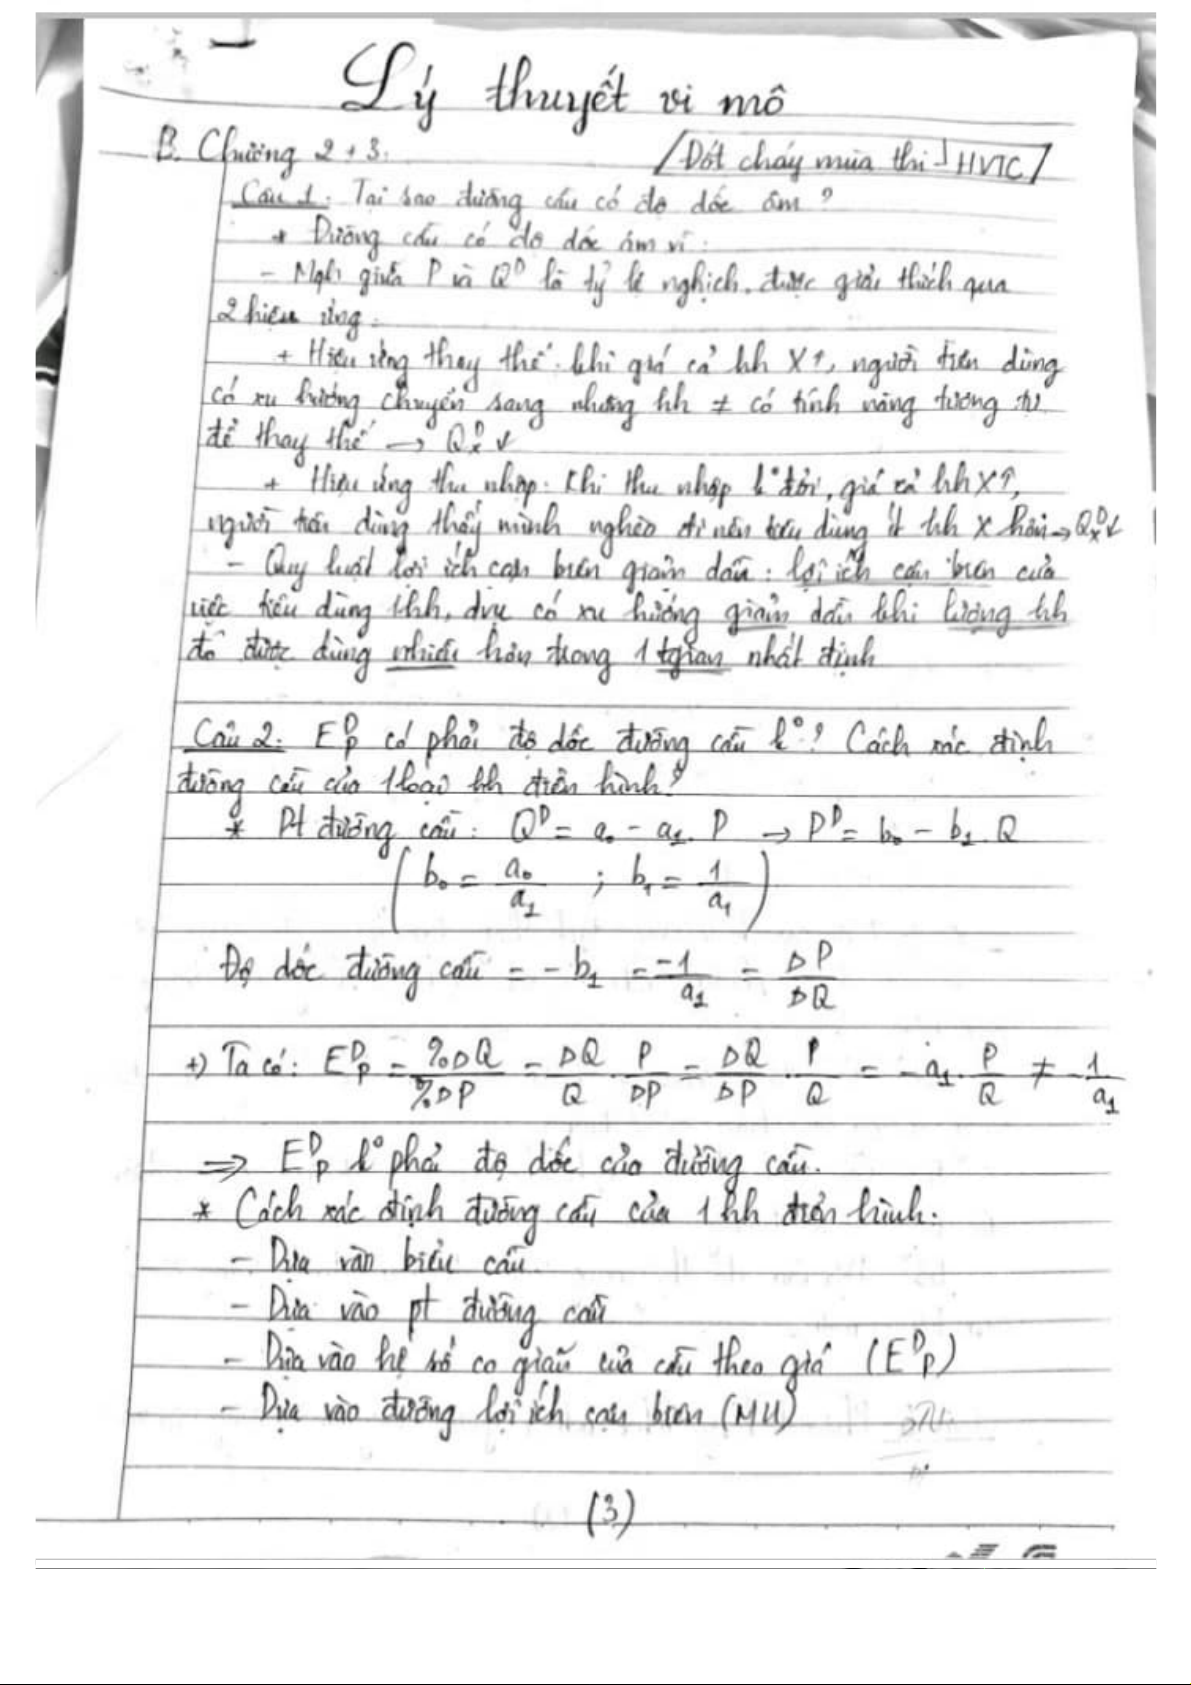 Lý thuyết vi mô
B. Chương 2 + 3.
/Đốt cháy mùa thi HVTC/
Câu 1: Tại sao đường cầu có độ dốc âm?
* Đường cầu có độ dốc âm vì:
- Mqh giữa P và Q^D là tỷ lệ nghịch, được giải thích qua
2 hiệu ứng:
+ Hiệu ứng thay thế: khi giá cả hh X↑, người tiêu dùng
có xu hướng chuyển sang những hh ≠ có tính năng tương tự
để thay thế → Q^D_x ↓
+ Hiệu ứng thu nhập: Khi thu nhập k° đổi, giá cả hh X↑,
người tiêu dùng thấy mình nghèo đi nên tiêu dùng ít hh X hơn → Q^D_x ↓
- Quy luật lợi ích cận biên giảm dần: lợi ích cận biên của
việc tiêu dùng 1 hh, dvụ có xu hướng giảm dần khi lượng hh
đó được dùng nhiều hơn trong 1 tgian nhất định
Câu 2: E^D_P có phải độ dốc đường cầu k°? Cách xác định
đường cầu của 1 loại hh điển hình?
* Pt đường cầu: Q^D = a₀ - a₁.P → P^D = b₀ - b₁.Q
(b₀ = a₀/a₁ ; b₁ = 1/a₁)
Độ dốc đường cầu = -b₁ = -1/a₁ = ΔP/ΔQ
+) Ta có: E^D_P = %ΔQ/%ΔP = ΔQ/Q . P/ΔP = ΔQ/ΔP . P/Q = -a₁ . P/Q ≠ -1/a₁
⇒ E^D_P k° phải độ dốc của đường cầu.
* Cách xác định đường cầu của 1 hh điển hình:
- Dựa vào biểu cầu
- Dựa vào pt đường cầu
- Dựa vào hệ số co giãn của cầu theo giá (E^D_P)
- Dựa vào đường lợi ích cận biên (MU)
(3)